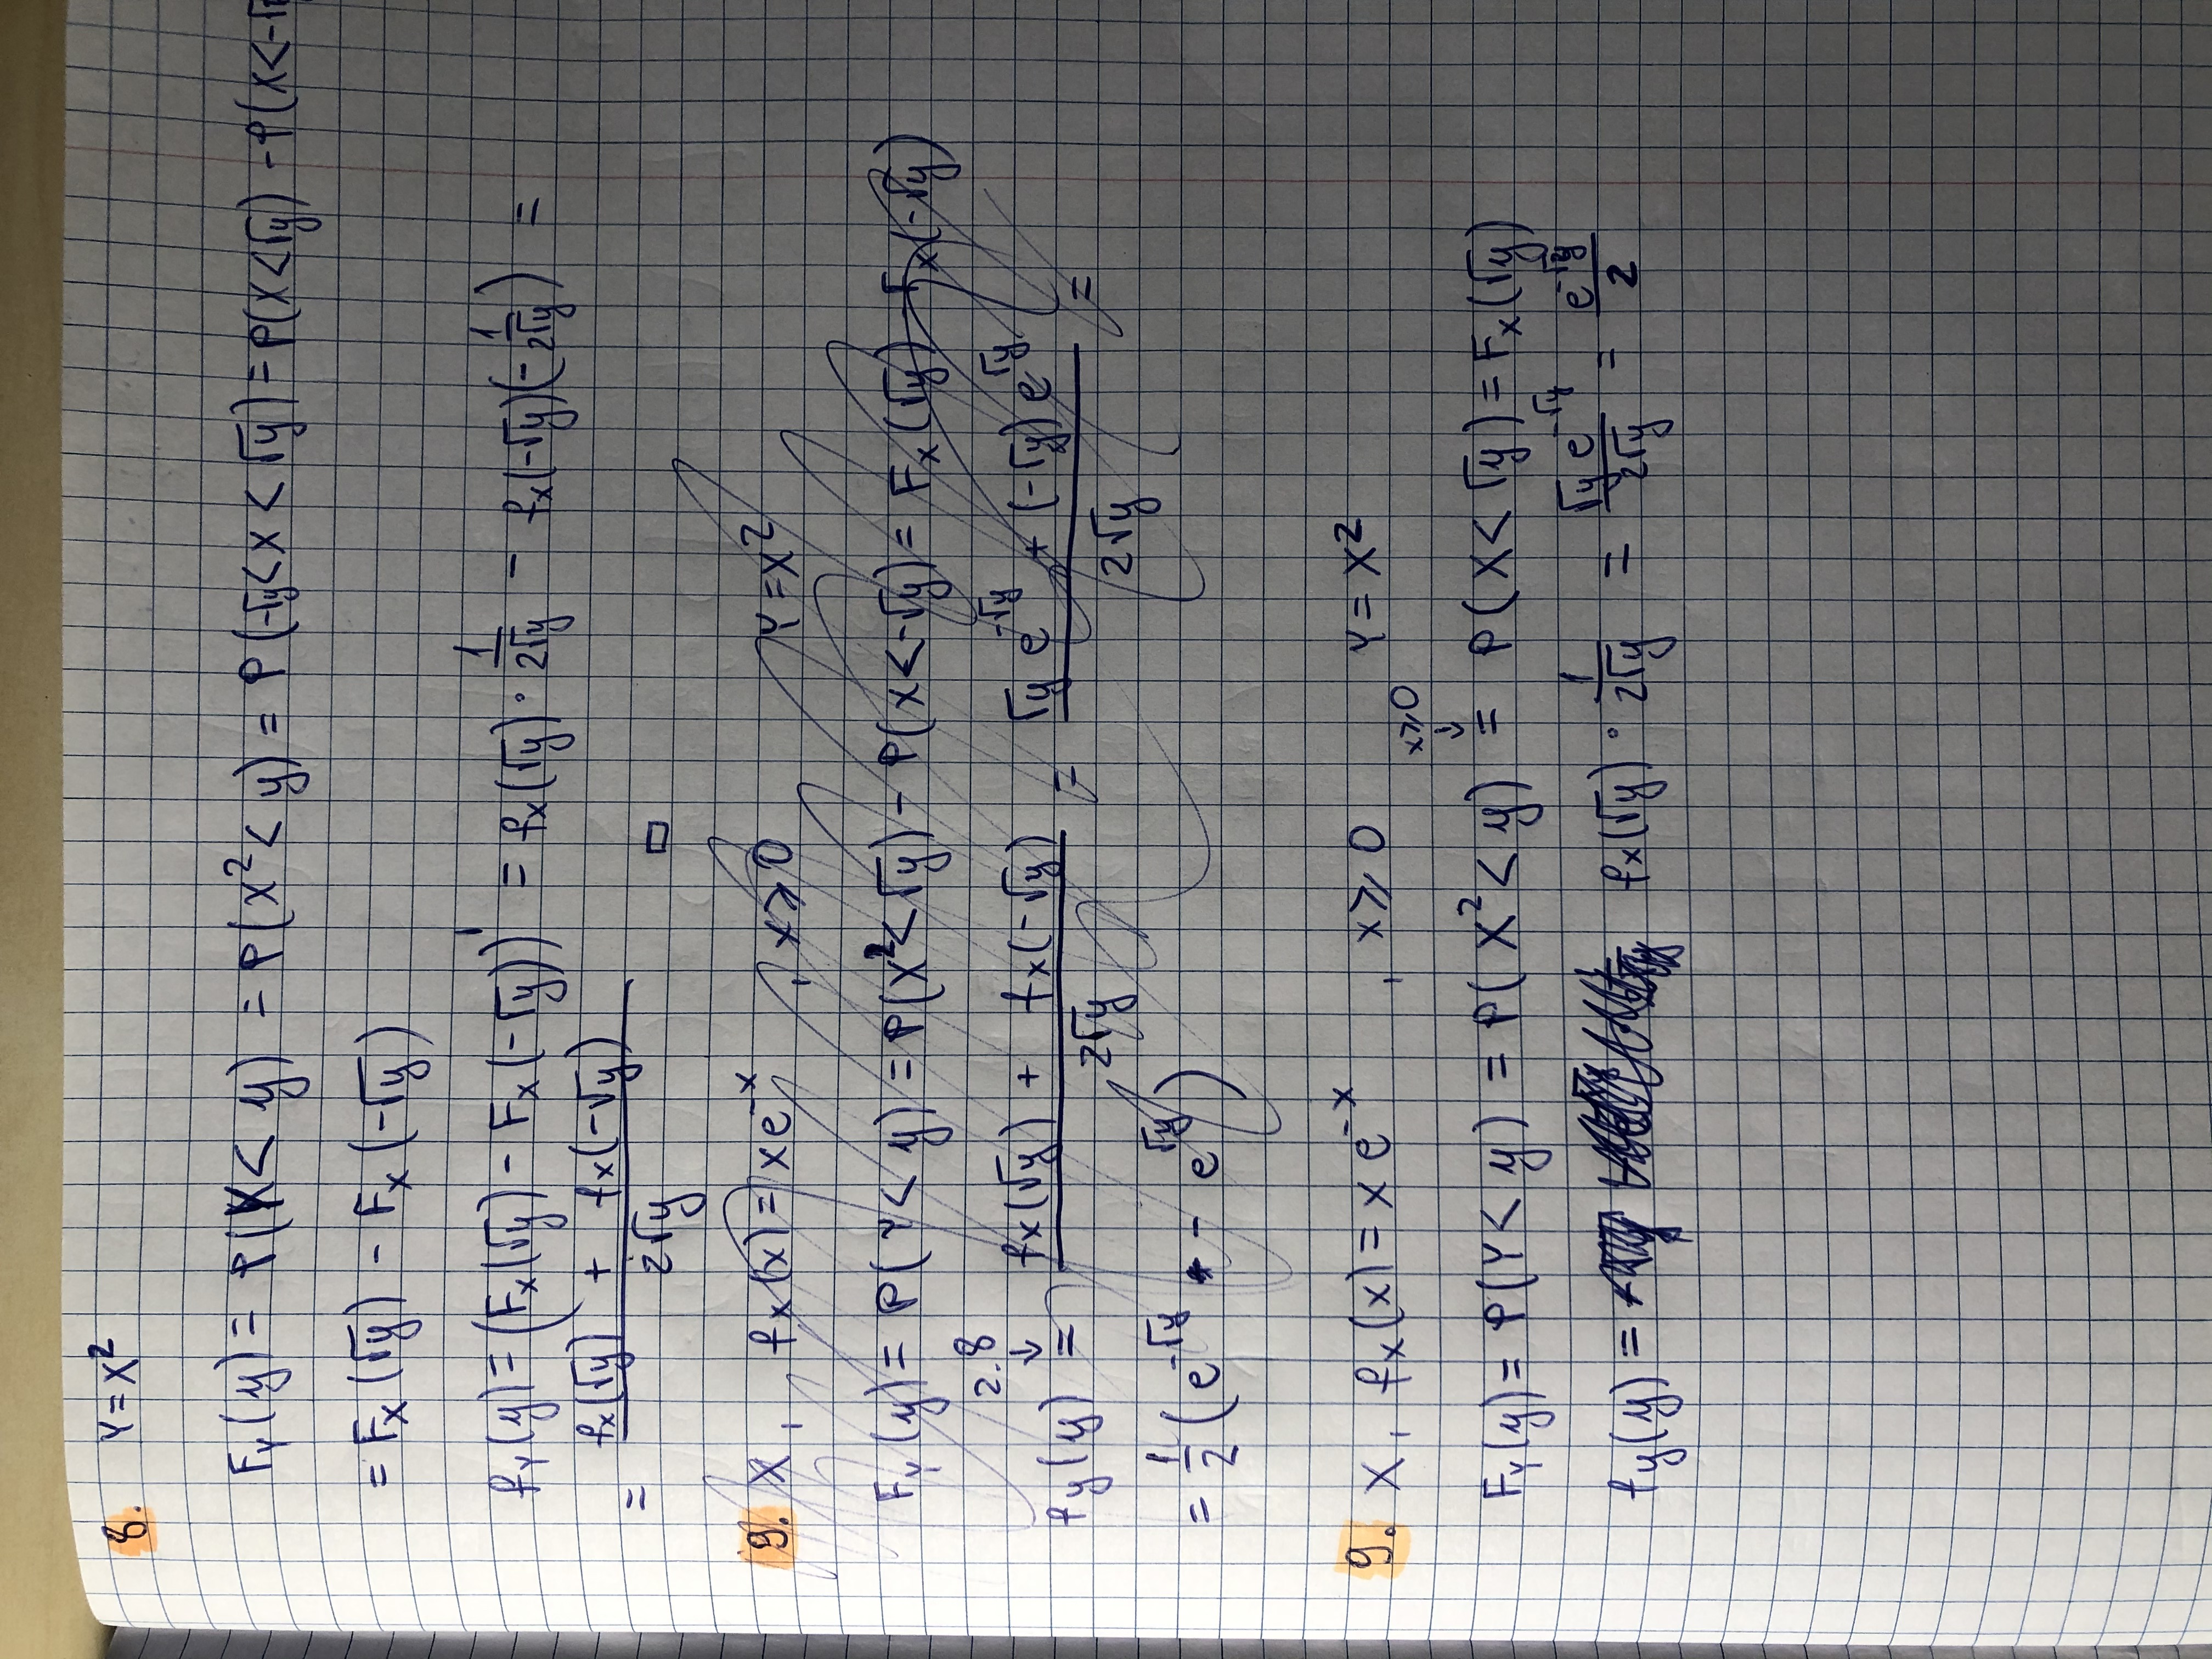 8. Y = X²
F_Y(y) = P(Y < y) = P(X² < y) = P(-√y < X < √y) = P(X < √y) - P(X < -√y
= F_X(√y) - F_X(-√y)
f_Y(y) = (F_X(√y) - F_X(-√y))' = f_X(√y) · 1/(2√y) - f_X(-√y)(-1/(2√y)) =
= (f_X(√y) + f_X(-√y))/(2√y) □
9. X, f_X(x) = x e^(-x), x ⩾ 0 Y = X²
F_Y(y) = P(Y < y) = P(X² < √y) - P(X < -√y) = F_X(√y) - F_X(-√y)
2.8
↓
f_y(y) = (f_X(√y) + f_X(-√y))/(2√y) = (√y e^(-√y) + (-√y) e^(√y))/(2√y) =
= 1/2 (e^(-√y) - e^(√y))
9. X, f_X(x) = x e^(-x), x ⩾ 0 Y = X²
x ⩾ 0
↓
F_Y(y) = P(Y < y) = P(X² < y) = P(X < √y) = F_X(√y)
f_y(y) = f_X(√y) · 1/(2√y) = (√y e^(-√y))/(2√y) = e^(-√y)/2